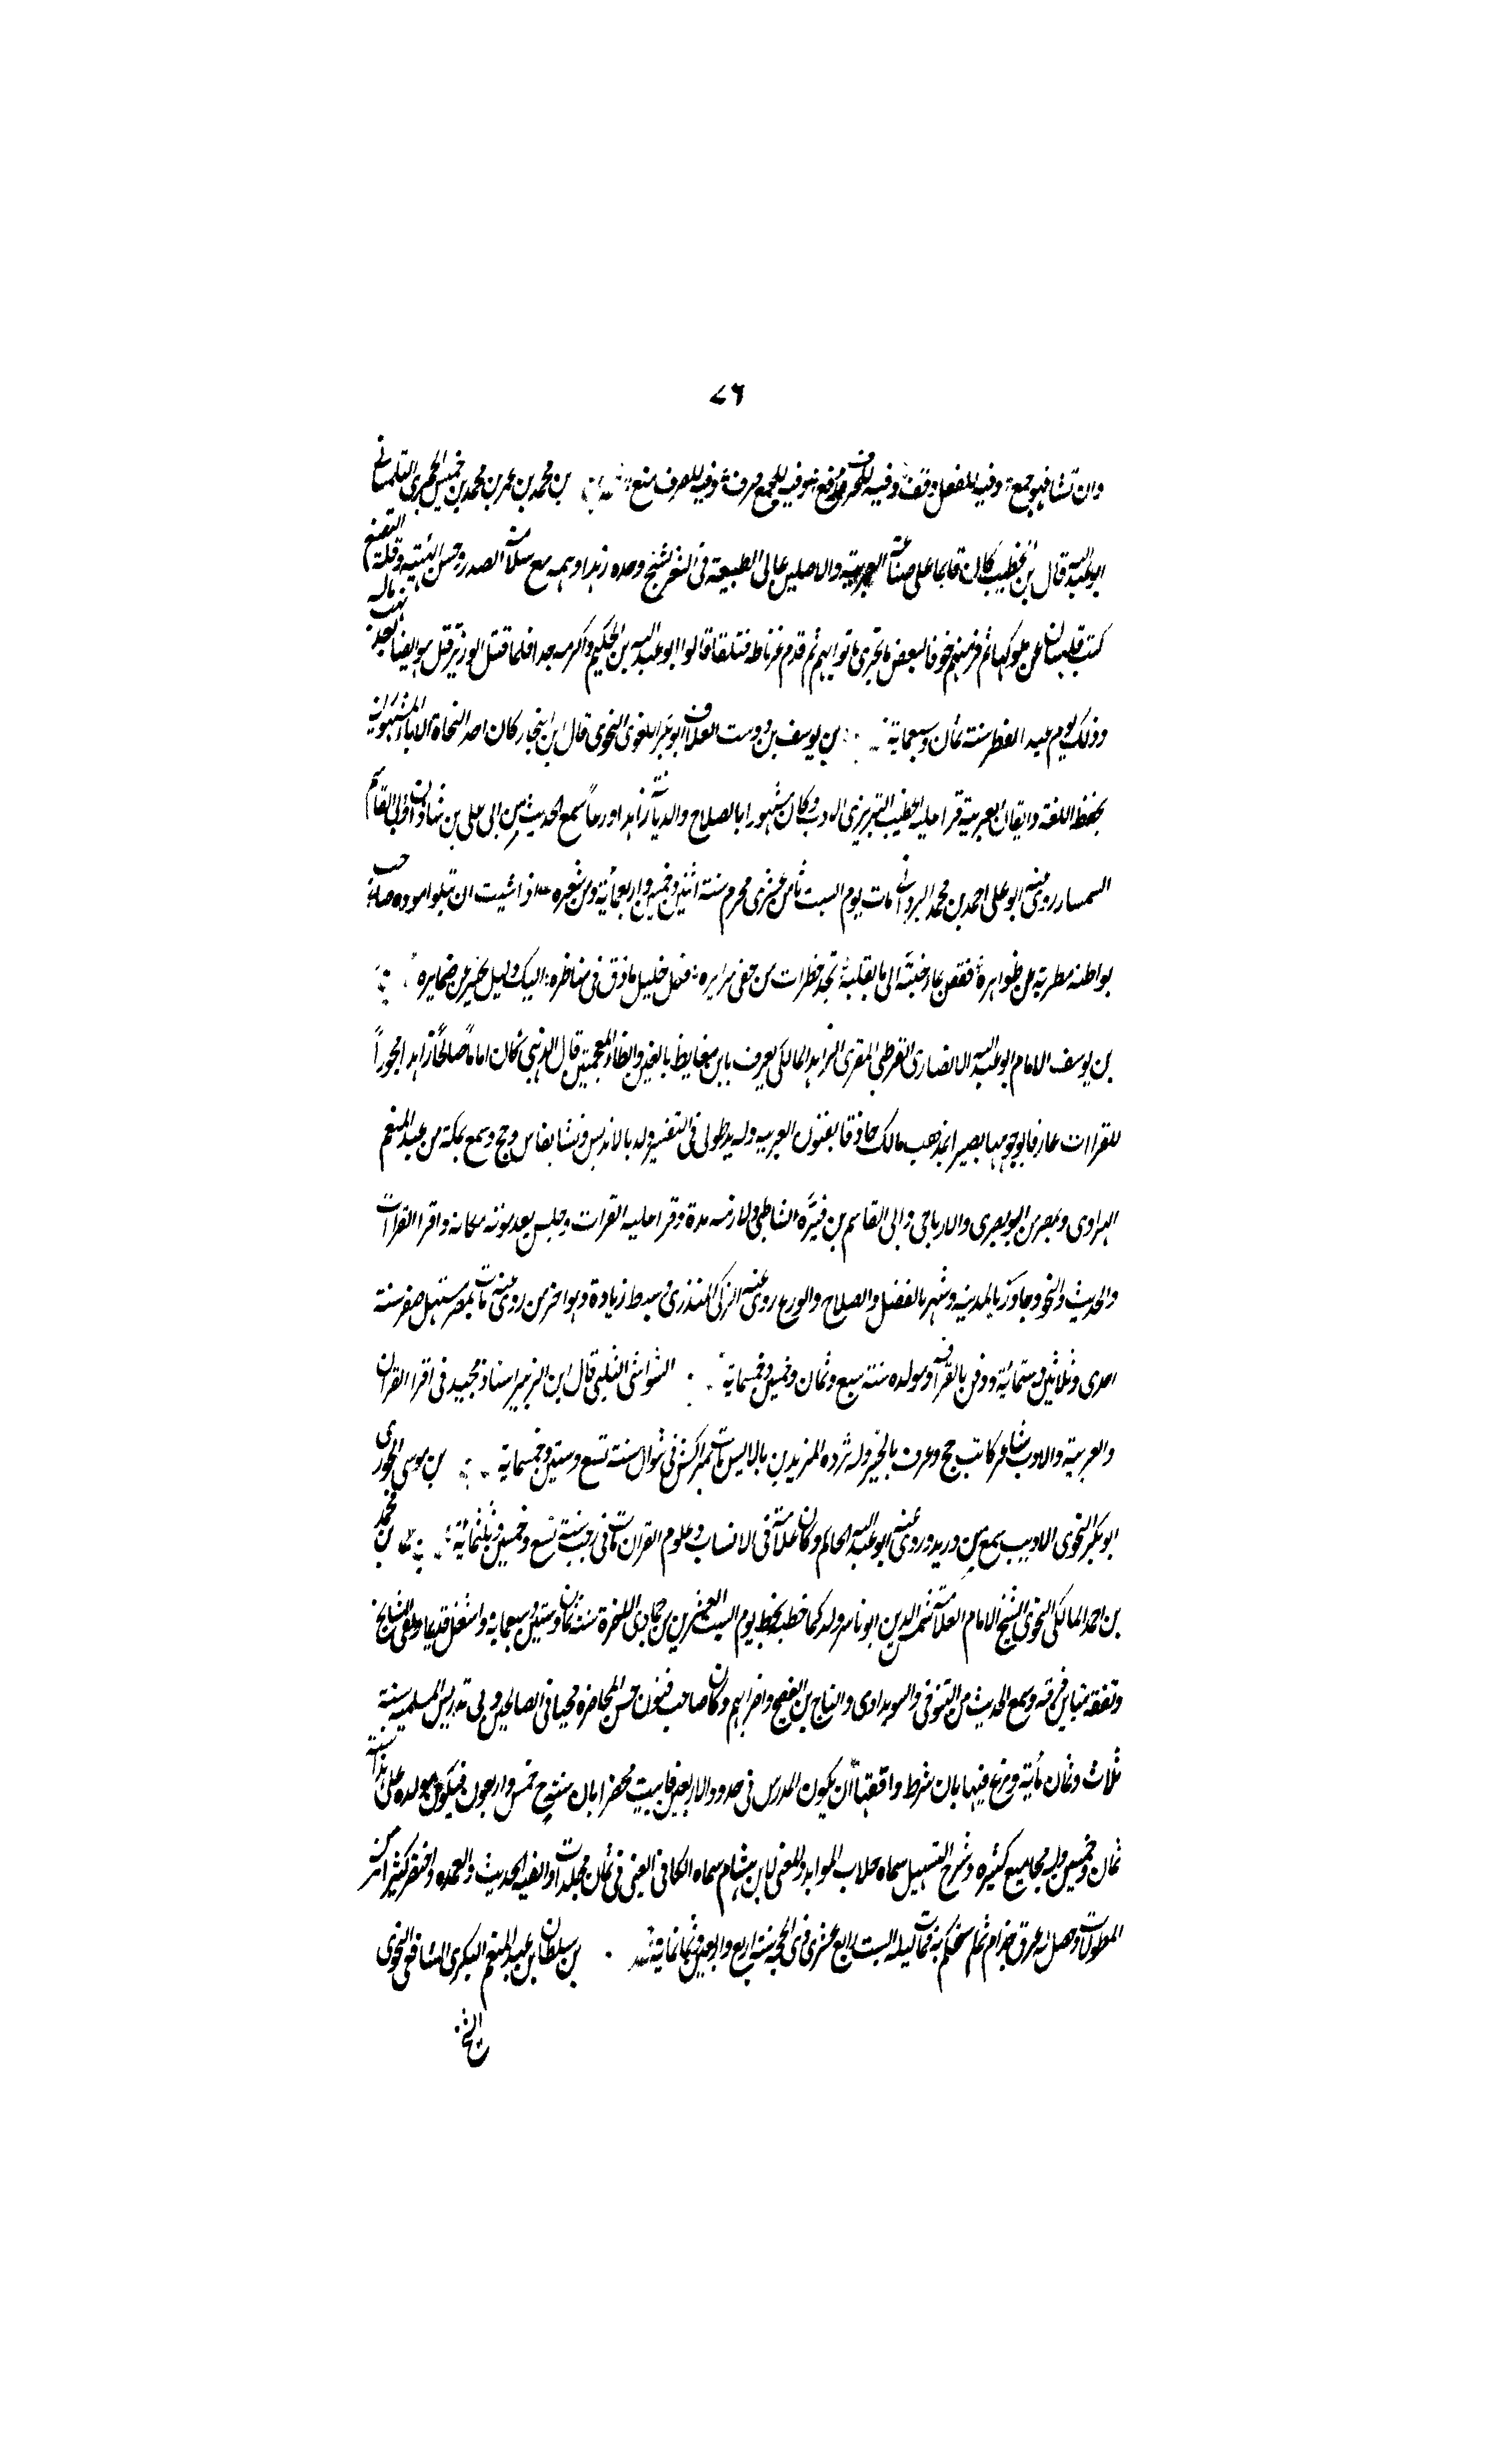 ٧٦
وان تشا فهو جمع وفيه للفعل وقف وفيه للحرف رفع وفيه للجمع صرف وفيه للصرف منع بن محمد بن عمر بن محمد بن خميس الحجري التلمساني
ابو عبد الله قال بن الخطيب كان قايما على صناعة العربية والاصلين عالى الطبيعة فى الشعر نسيج وحده زهدا وهمه مع سلامة الصدر وحسن الهيئة وقلة التصنع
كتب بتلمسان عن ملوكها ثم فر منهم خوفا لبعض ما يجرى بابوابهم ثم قدم غرناطه فتلقاه الوزير ابو عبد الله بن الحكيم واكرمه جدا فلما قتل الوزير قتل هو ايضا بعد نهب ماله
وذلك يوم عيد الفطر سنة ثمان وسبعماية بن يوسف بن دوست العلاف ابو بكر اللغوى النحوى قال ابن النجار كان احد النحاة الادباء المشهورين
بحفظ اللغة واتقان العربية قرا عليه الخطيب التبريزى الادب وكان مشهورا بالصلاح والديانة زاهدا ورعاً سمع الحديث من ابى على بن شاذان وابى القاسم
السمسار روى عنه ابو على احمد بن محمد البردانى مات يوم السبت ثامن عشرى محرم سنة اثنين وخمسين واربعمأية ومن شعره اذا شيت ان تبلو مودة صاحب
بواطنه مطوية عن ظواهره فقس ما بعينيه الى ما بقلبه تجد خطرات من خفى سرايره فكل خليل ماذق فى مناظره اليك دليل مخبر عن ضمايره
بن يوسف الامام ابو عبد الله الانصارى القرطبى المقرى الزاهد المالكى يعرف بابن مغايظ بالغين والظاء المعجمتين قال الذهبى كان اماماً صالحاً زاهدا مجوداً
للقراات عارفا بوجوهها بصيرا بمذهب مالك حاذقا بفنون العربيه وله يد طولى فى التفسير ولد بالاندلس ونشا بفاس وحج وسمع بمكة من عبد المنعم
الفراوى وبمصر من البوصيرى والارتاجى وابى القاسم بن فيرّه الشاطبى ولازمه مدة وقرا عليه القرات وجلس بعد موته مكانه واقرا القرآت
والحديث والنحو وجاور بالمدينه وشهر بالفضل والصلاح والورع روى عنه الزكى المنذرى وبسط زيادة وهو اخر من روى عنه مات بمصر مستهل صفر سنة
احدى وثلاثين وستمائية ودفن بالقرافه ومولده سنة سبع وثمان وخمسين وخمسماية الشواشى الشلبى قال ابن الزبير استاذ مجيد فى اقرا القران
والعربية والادب شاعر كاتب حج وعرف بالخير وله ثروه مات بمراكش فى شوال سنة تسع وستين وخمسماية بن موسى الجورى
ابو بكر النحوى الاديب سمع من بن دريد وروى عنه ابو عبد الله الحاكم وكان علامة فى الانساب وعلوم القران مات فى رجب سنة تسع وخمسين وثلثمائية بن محمد
بن احمد المالكى النحوى الشيخ الامام العلامة شمس الدين ابو ياسر ولد كما خط بخطه يوم السبت العشرين من جمادى الاخرة سنة ثمان وستين وسبعماية واشتغل قديما ولقى المشايخ
وتفقه وسمع الحديث من التنوخى والسويداوى والتاج بن الفصيح واضرابهم وكان صاحب فنون حسن المحاضره محبا فى الصالحين ولى تدريس المسلميه سنة
ثلاث وثمان مأية ونوزع فيها بان شرط واقفها أن يكون المدرس فى حدود الاربعين فاثبت محضرا بان سنه ح خمس واربعون فيكون مولده على هذا سنة
ثمان وخمسين وله مجاميع كثيره وشرح التسهيل سماه جلاب الموايد والمغنى لابن هشام سماه الكافى المغنى فى ثمان مجلدات والفيه الحديث والعمده واختصر كثيرا من
المطولات وحصل له عرق جذام ثم استحكم به فمات ليلة السبت رابع عشرى ذى الحجه سنة اربع واربعين وثمانماية بن سلطان بن عبد المنعم البكرى الشافعى النحوى
الخ